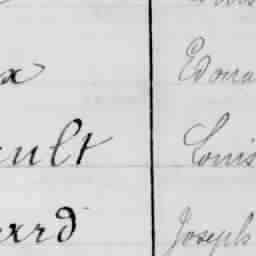 x Edoua
ault Louis
ard Joseph